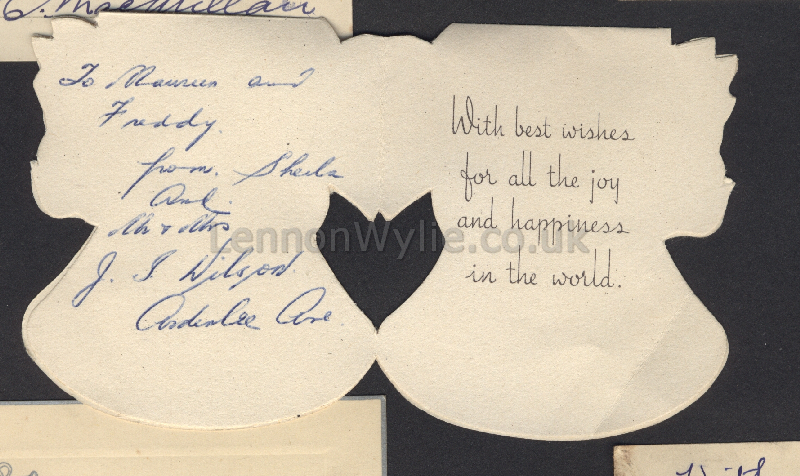 C. MacMillan
To Maureen and
Freddy.
from. Sheila
And.
Mr & Mrs
J. I Wilson.
Ardenlee Ave.
With best wishes
for all the joy
and happiness
in the world.
LennonWylie.co.uk
With